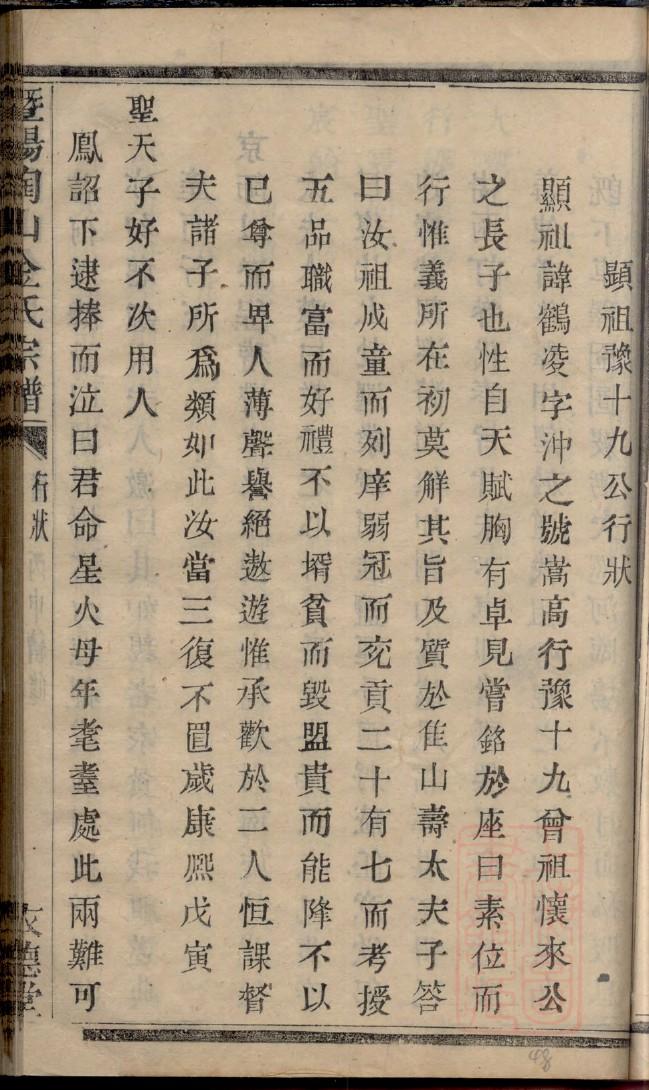 顯祖豫十九公行狀
顯祖諱鶴凌字沖之號嵩高行豫十九曾祖懷來公
之長子也性自天賦胸有卓見嘗銘於座曰素位而
行惟義所在初莫解其旨及質於隹山壽太夫子答
曰汝祖成童而列庠弱冠而充貢二十有七而考授
五品職富而好禮不以壻貧而毀盟貴而能降不以
已尊而畀人薄聲譽絕遨遊惟承歡於二人恒課督
夫諸子所爲類如此汝當三復不置歲康熙戊寅
聖天子好不次用人
鳳詔下逮捧而泣曰君命星火母年耄耋處此兩難可
暨陽陶山金氏宗譜 行狀 文德堂
48